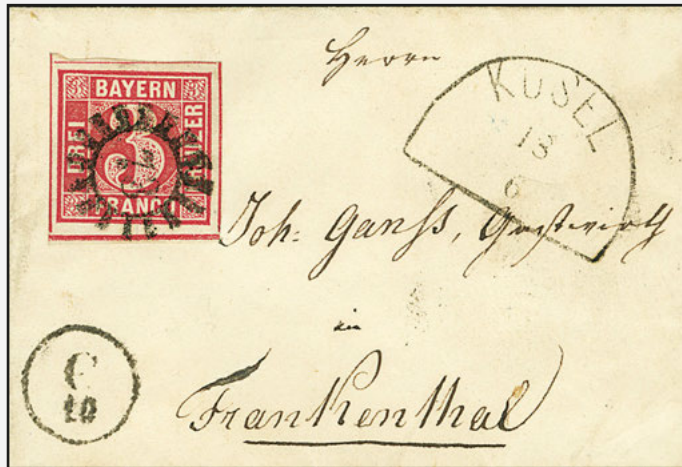 Herrn
BAYERN
DREI
KREUZER
3
FRANCO
KUSEL
13
6
Joh: Ganss, Gastwirth
in
Frankenthal
C
10